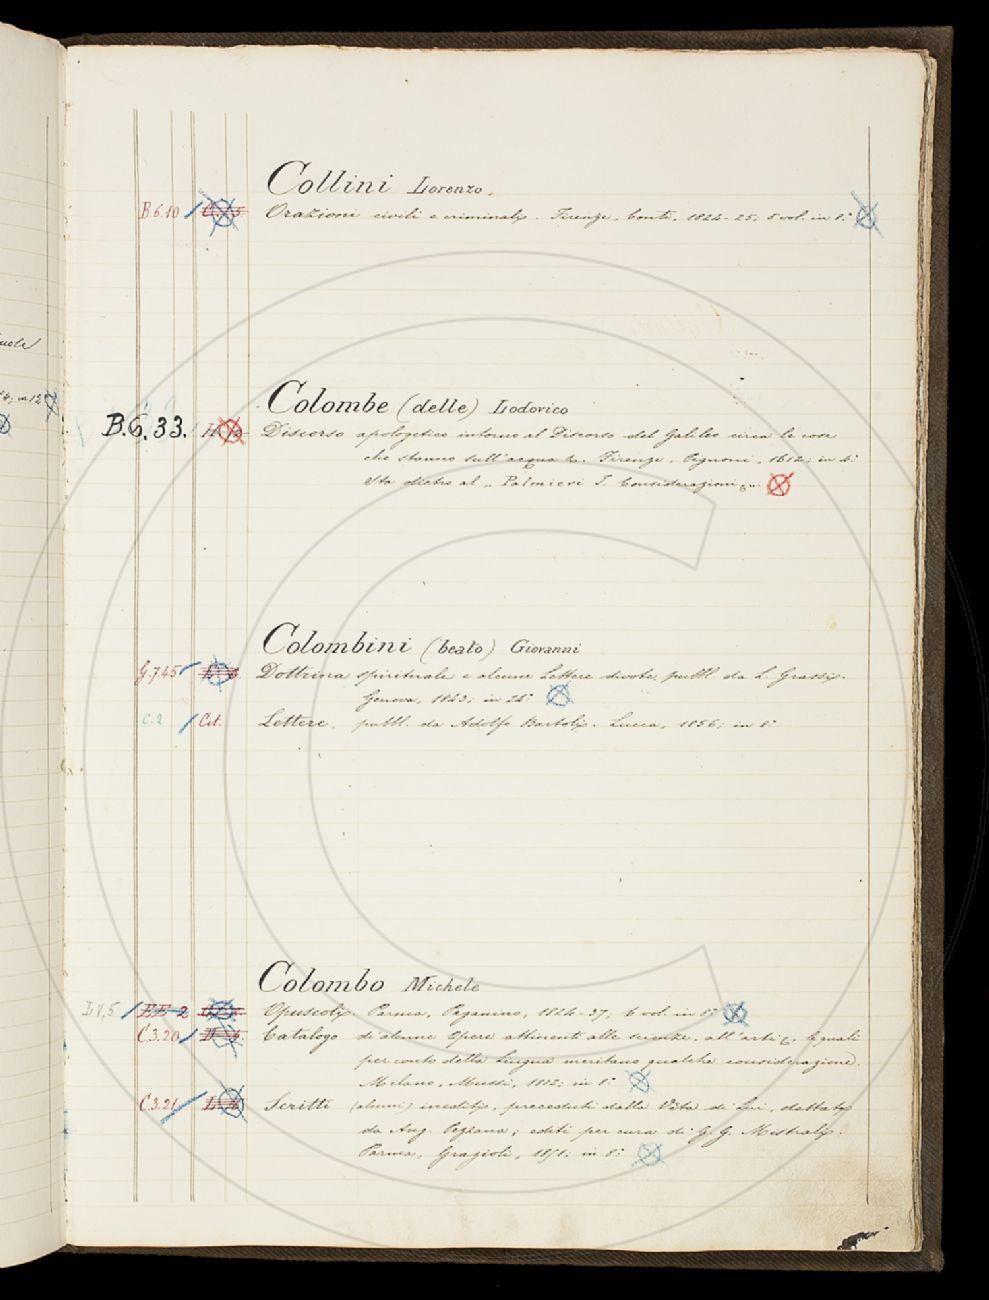 Collini Lorenzo.
B.6.10 Orazioni civili e criminali. Firenze, Conti, 1824-25; 5 vol. in 8°
Colombe (delle) Lodovico
B.6.33. Discorso apologetico intorno al Discorso del Galileo circa le cose
che stanno sull'acqua &. Firenze, Pignoni, 1612; in 4°
Sta dietro al „Palmieri T. Considerazioni &"
Colombini (beato) Giovanni
G.7.45 Dottrina spirituale e alcune Lettere divote, pubbl. da L. Grassi.
Genova, 1843; in 24°
C.2 Cit. Lettere, pubbl. da Adolfo Bartoli. Lucca, 1856; in 8°
Colombo Michele
I.V,5 EE 2 Opuscoli. Parma, Paganino, 1824-37; 6 vol. in 8°
C.3.20 Catalogo di alcune Opere attinenti alle scienze, all'arti &, le quali
per conto della Lingua meritano qualche considerazione.
Milano, Mussi, 1812; in 8°
C.3.21 Scritti (alcuni) inediti, preceduti dalla Vita di Lui, dettata
da Aug. Pezzana; editi per cura di G. G. Mistrali.
Parma, Grazioli, 1851; in 8°